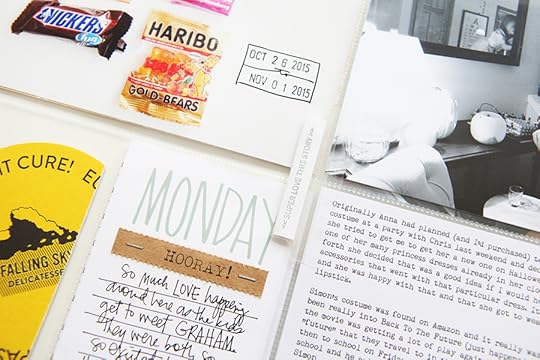 SNICKERS
HARIBO
GOLD-BEARS
OCT 26 2015
NOV 01 2015
IT CURE!
FALLING SKY
DELICATESSE
SUPER LOVE THIS STORY
MONDAY
HOORAY!
So much LOVE happening
around here as the kids
get to meet GRAHAM.
They were both so
Originally Anna had planned (and I'd purchased)
costume at a party with Chris last weekend and dec
she tried to get me to get her a new one on Hallow
one of her many princess dresses already in her clo
forth she decided that was a good idea if I would he
accessories that went with that particular dress. It
lipstick.
and she was happy with that and that she got to wea
Simon's costume was found on Amazon and it really wa
been really into Back To The Future (just happened
the movie was getting a lot of play again
"future" that they travel to in the
then to school on Friday
school and he
Simon